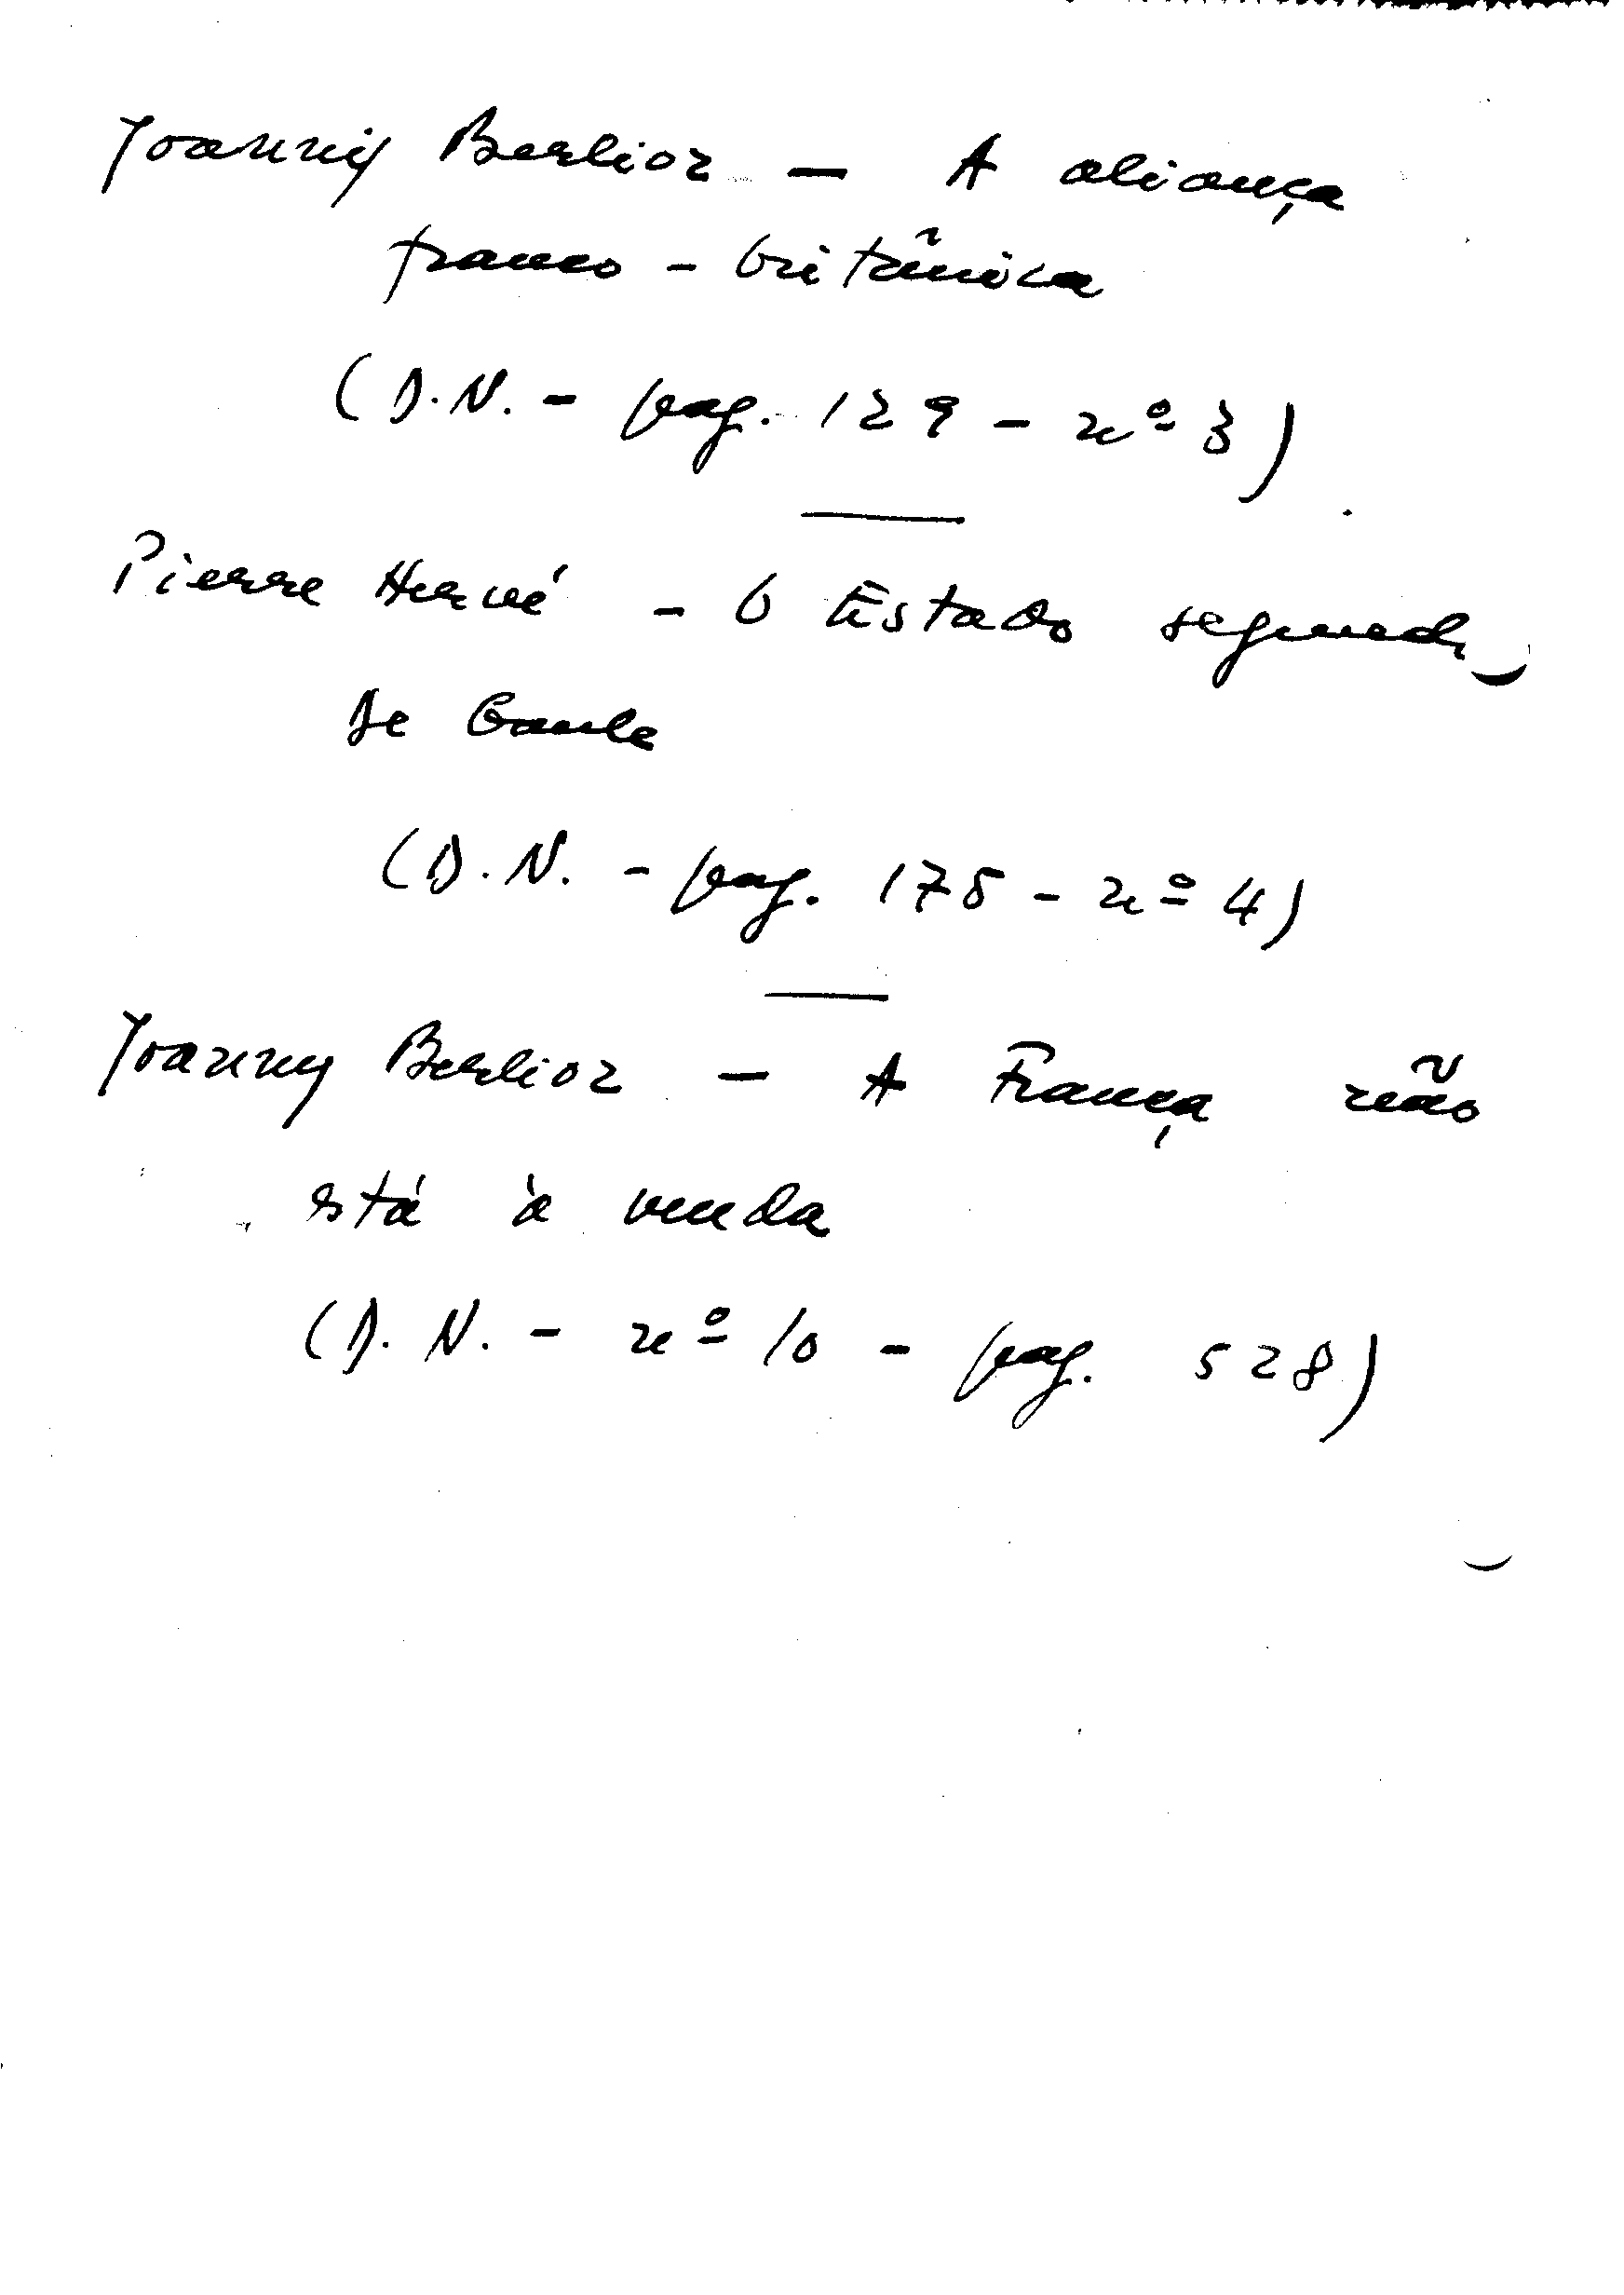 Joanny Berlioz — A aliança
franco-britânica
(D.N. - pag. 129 - nº 3)
Pierre Hervé - O Estado segundo
De Gaulle
(D.N. - pag. 175 - nº 4)
Joanny Berlioz — A França não
está à venda
(D.N. - nº 10 - pag. 528)